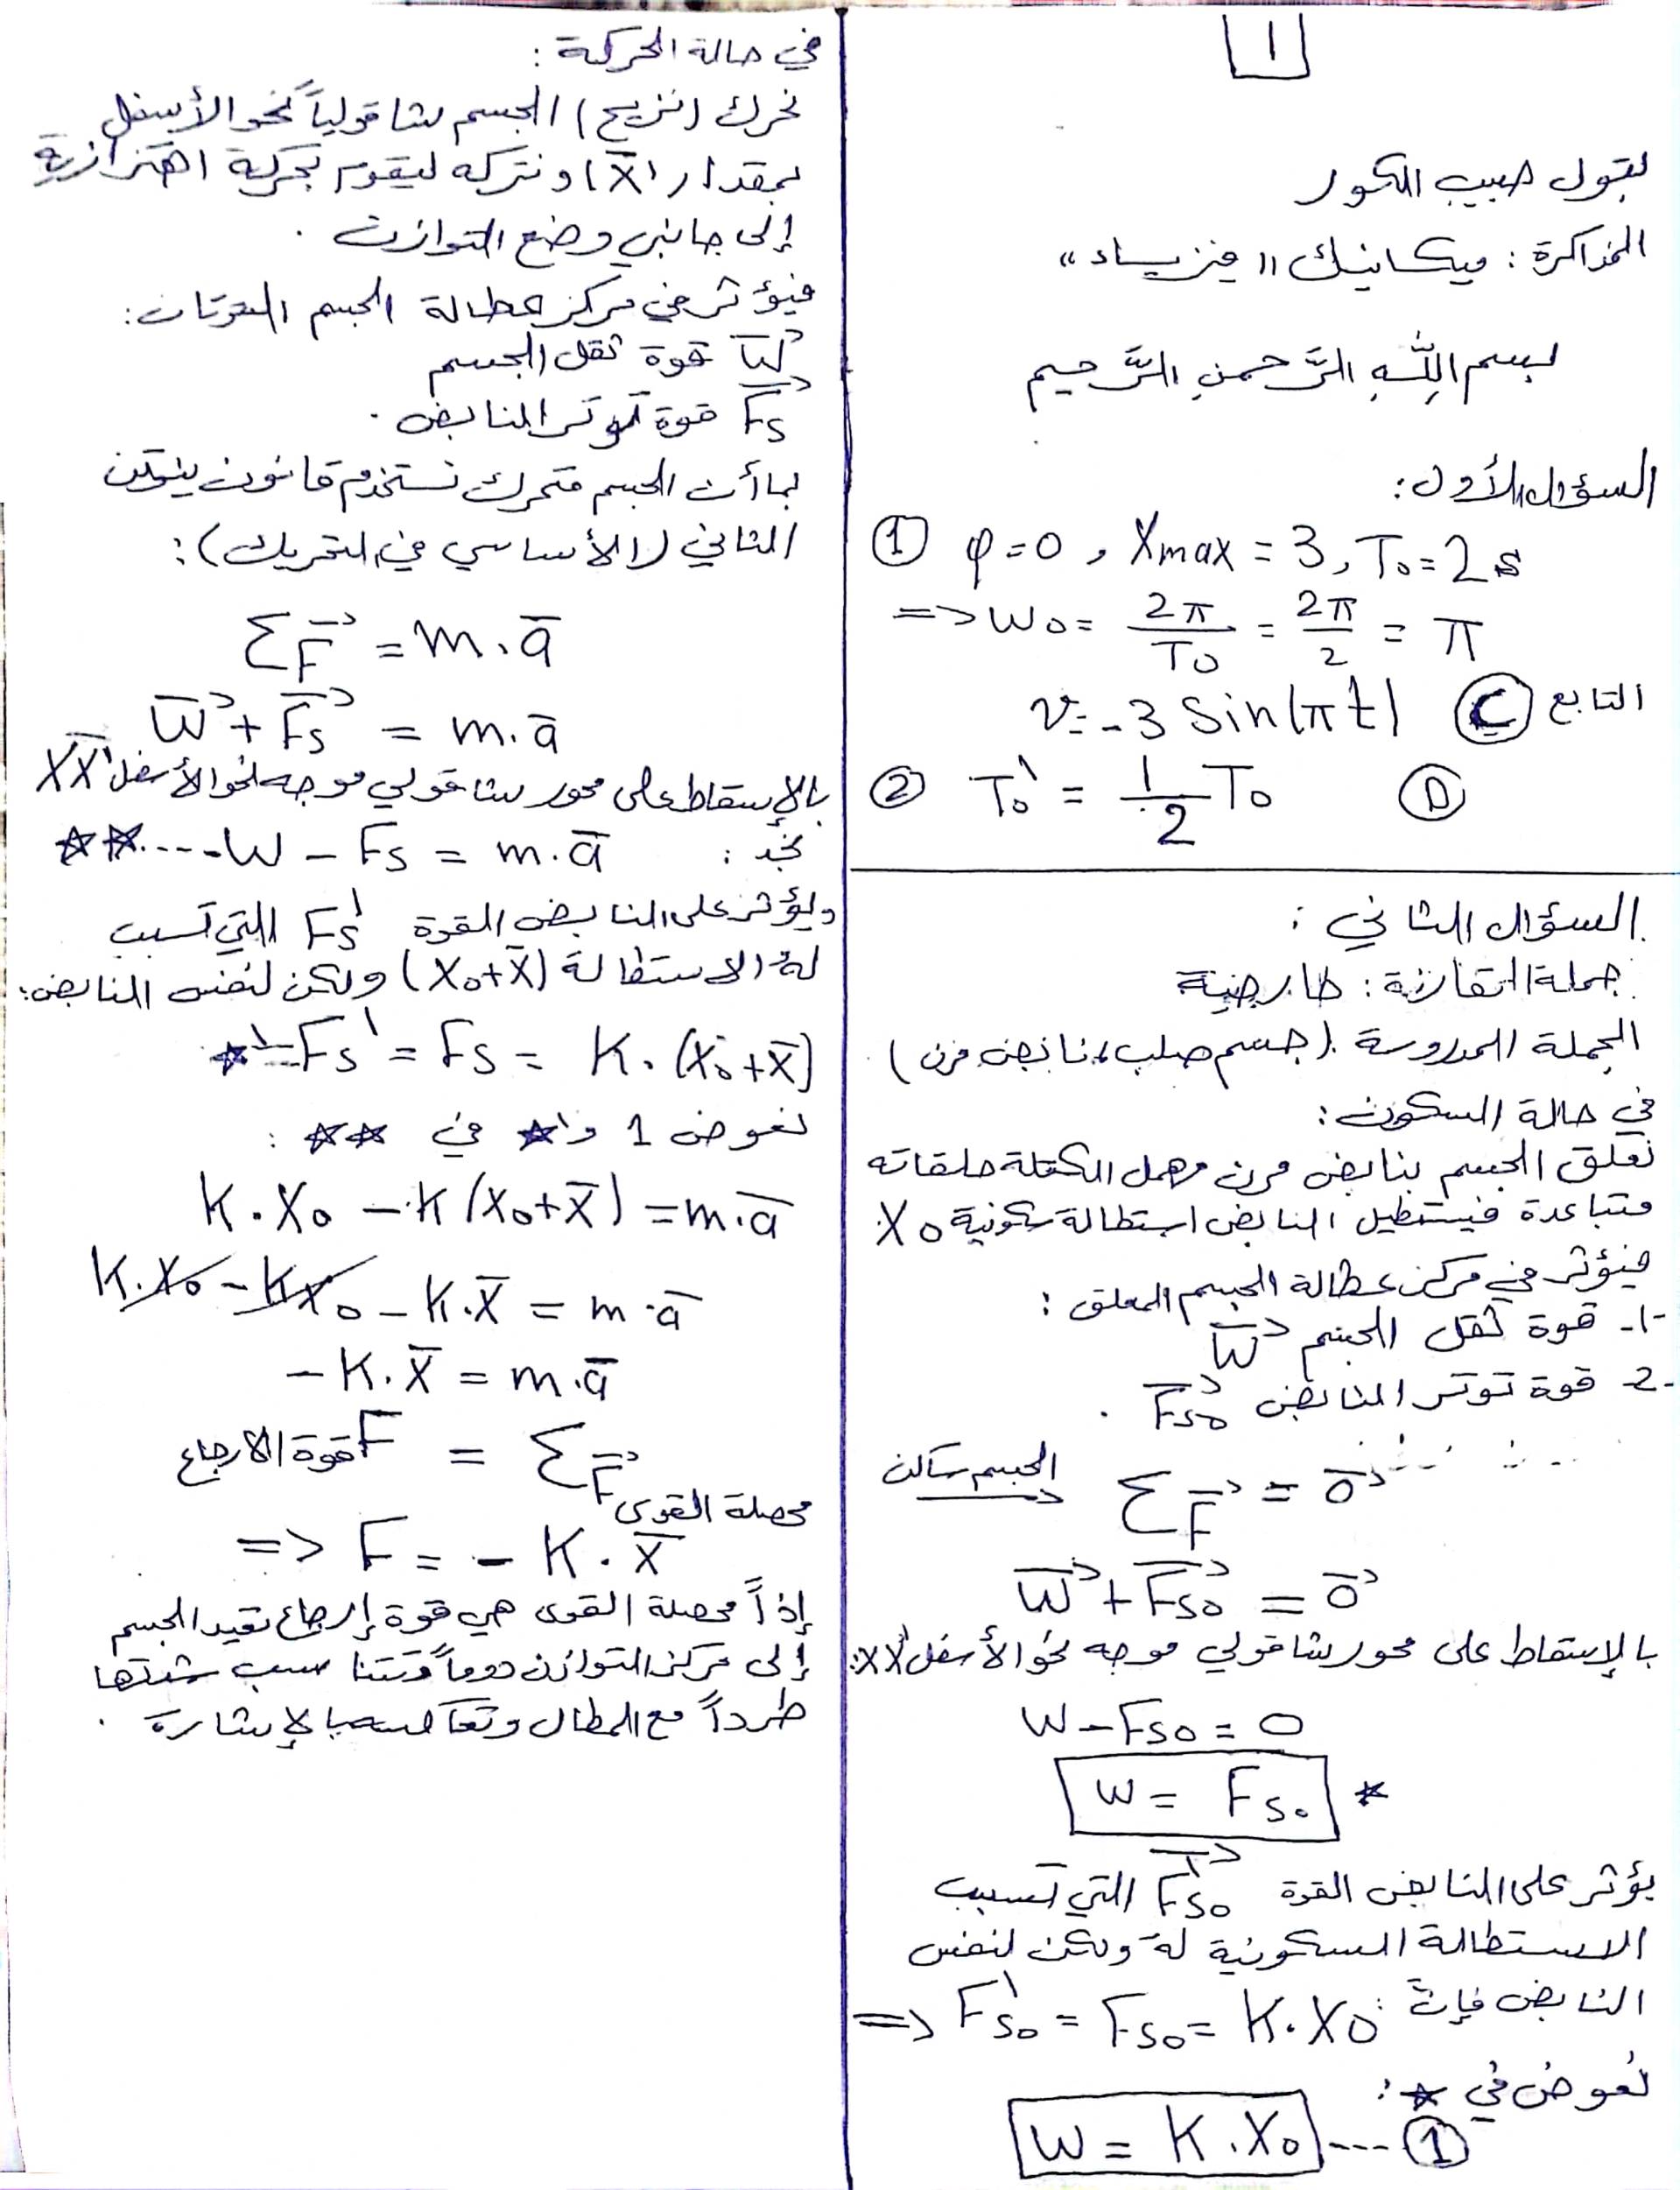 1
بتول حبيب الكور
المذاكرة: ميكانيك "فيزياء"
بسم اللّٰهِ الرَّحمنِ الرَّحيم
السؤال الأول:
① φ=0 , Xmax = 3, T₀= 2s
=> ω₀= 2π/T₀ = 2π/2 = π
التابع Ⓒ v= -3 sin(πt)
② T₀' = 1/2 T₀ Ⓓ
السؤال الثاني:
جملة المقارنة: خارجية
الجملة المدروسة (جسم صلب، نابض مرن)
في حالة السكون:
نعلق الجسم بنابض مرن مهمل الكتلة حلقاته
متباعدة فيستطيل النابض استطالة سكونية X₀
فيؤثر في مركز عطالة الجسم المعلق:
1- قوة ثقل الجسم W⃗
2- قوة توتر النابض F⃗s₀ .
الجسم ساكن => ΣF⃗ = 0⃗
W⃗ + F⃗s₀ = 0⃗
بالإسقاط على محور شاقولي موجه نحو الأسفل x'x:
W - Fs₀ = 0
W = Fs₀ *
يؤثر على النابض القوة F⃗'s₀ التي تسبب
الاستطالة السكونية له ولكن لنفس
النابض فإن: F's₀ = Fs₀ = K.X₀ =>
نعوض في *:
W = K.X₀ ---- ①
في حالة الحركة:
نحرك (نزيح) الجسم شاقولياً نحو الأسفل
بمقدار (x̄) ونتركه ليقوم بحركة اهتزازية
إلى جانبي وضع التوازن .
فيؤثر في مركز عطالة الجسم القوتان:
W⃗ قوة ثقل الجسم
F⃗s قوة توتر النابض .
بما أن الجسم متحرك نستخدم قانون نيوتن
الثاني (الأساسي في التحريك):
ΣF⃗ = m.ā
W⃗ + F⃗s = m.ā
بالإسقاط على محور شاقولي موجه نحو الأسفل x'x
نجد: W - Fs = m.ā ....**
ويؤثر على النابض القوة Fs' التي تسبب
له الاستطالة (X₀+x̄) ولكن لنفس النابض:
*' - Fs' = Fs = K.(X₀+x̄)
نعوض 1 و *' في **:
K.X₀ - K(X₀+x̄) = m.ā
K.X₀ - KX₀ - K.x̄ = m.ā
-K.x̄ = m.ā
قوة الارجاع F = ΣF⃗
محصلة القوى
=> F = -K.x̄
إذاً محصلة القوى هي قوة إرجاع تعيد الجسم
إلى مركز التوازن دوماً تتناسب شدتها
طرداً مع المطال وتعاكسه بالإشارة .